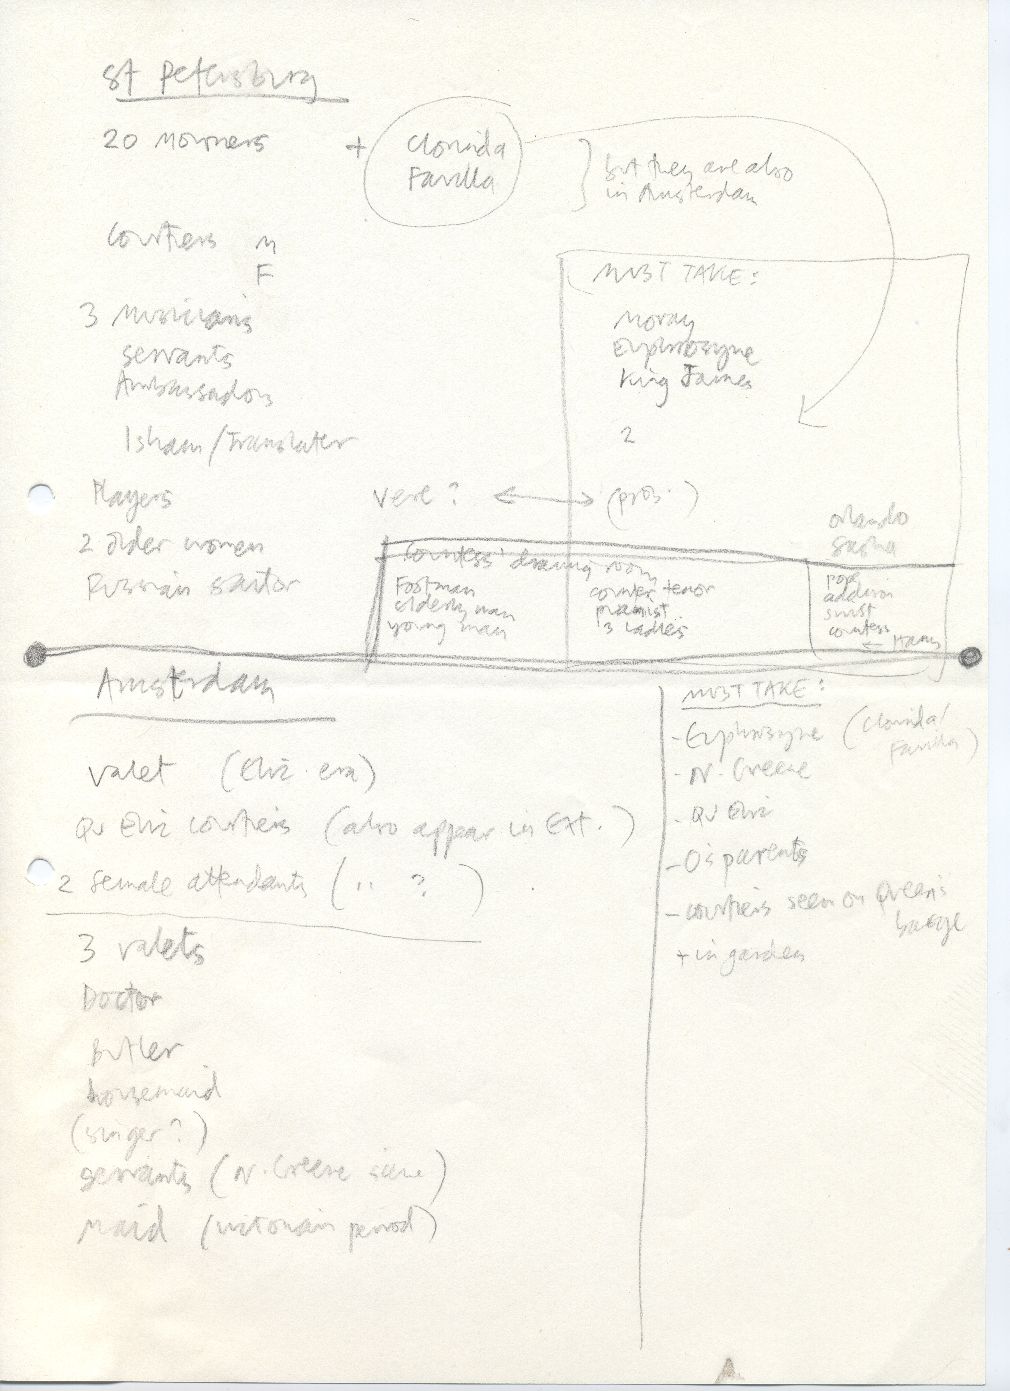 St Petersburg
20 Mourners + Clorinda
Favilla
but they are also
in Amsterdam
Courtiers M
F
MUST TAKE:
3 Musicians
Moray
servants
Euphrosyne
Ambassadors
King James
Isham/Translater
2
Players
Vere? (prob.)
2 older women
Orlando
Sasha
Russian sailor
Countess' drawing room
Footman
elderly man
young man
counter tenor
pianist
3 Ladies
pope
addison
swift
countess
← Harry
Amsterdam
MUST TAKE:
- Euphrosyne (Clorinda/
Favilla)
valet (Eliz. era)
- N. Greene
Qu Eliz courtiers (also appear in Ext.)
- QU Eliz
- O's parents
2 female attendants (" ?)
- courtiers seen on Queen's
barge
+ in garden
3 valets
Doctor
Butler
housemaid
(singer?)
servants (N. Greene scene)
Maid (victorian period)